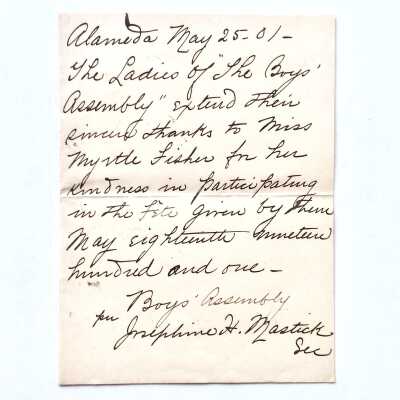 Alameda May 25-01-
The Ladies of "The Boys'
Assembly" extend their
sincere thanks to Miss
Myrtle Fisher for her
kindness in participating
in the fête given by them
May eighteenth nineteen
hundred and one-
per Boys' Assembly
Josephine H. Mastick
Sec